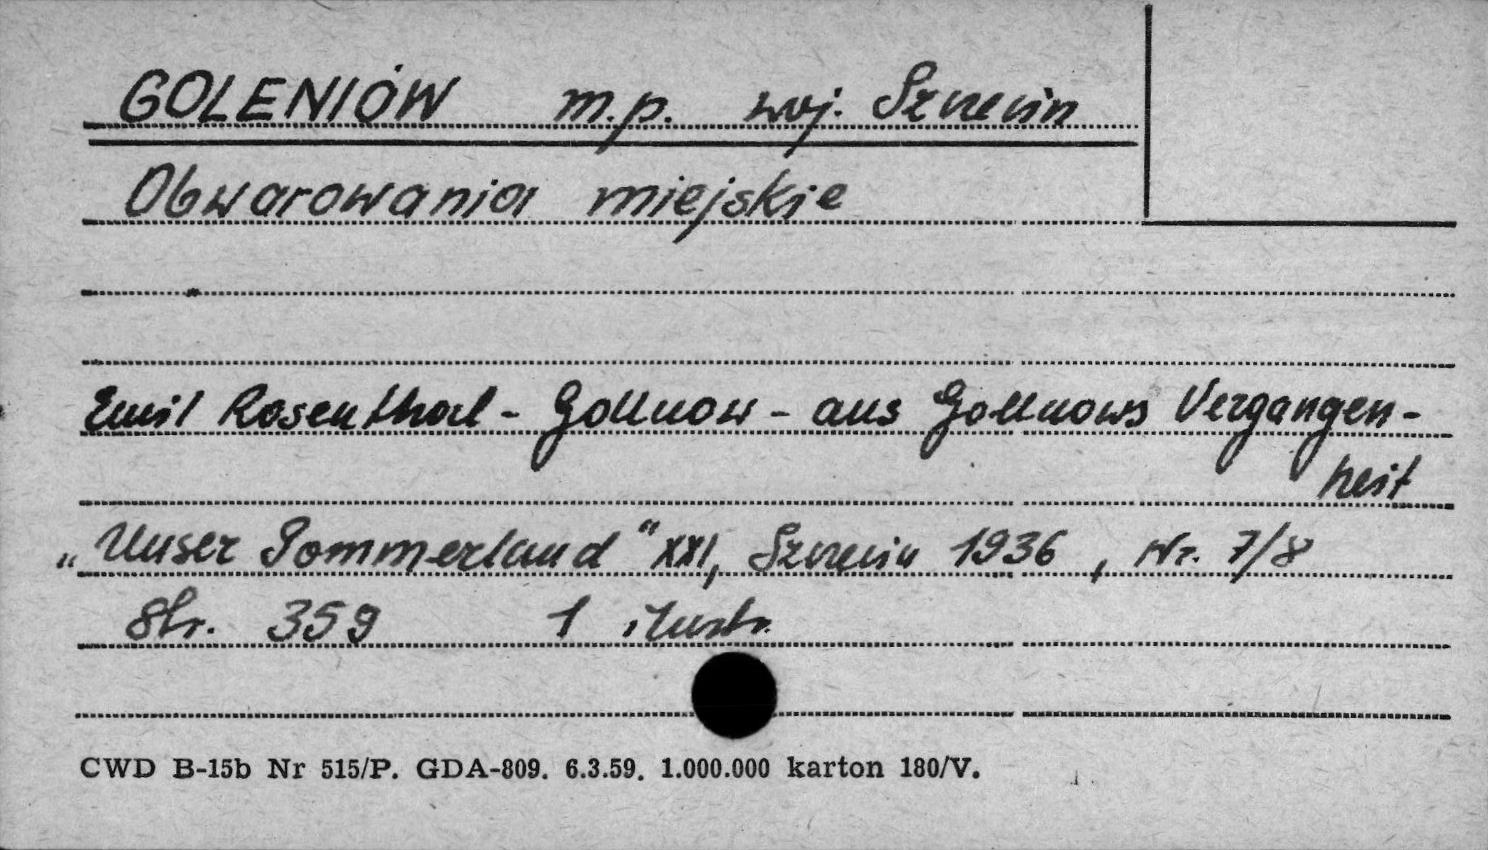 GOLENIÓW m.p. woj. Szczecin
Obwarowania miejskie
Emil Rosenthal - Gollnow - aus Gollnows Vergangen-
heit
„Unser Pommerland“ XXI, Szczecin 1936, Nr. 7/8
Str. 359 1 ilustr.
CWD B-15b Nr 515/P. GDA-809. 6.3.59. 1.000.000 karton 180/V.